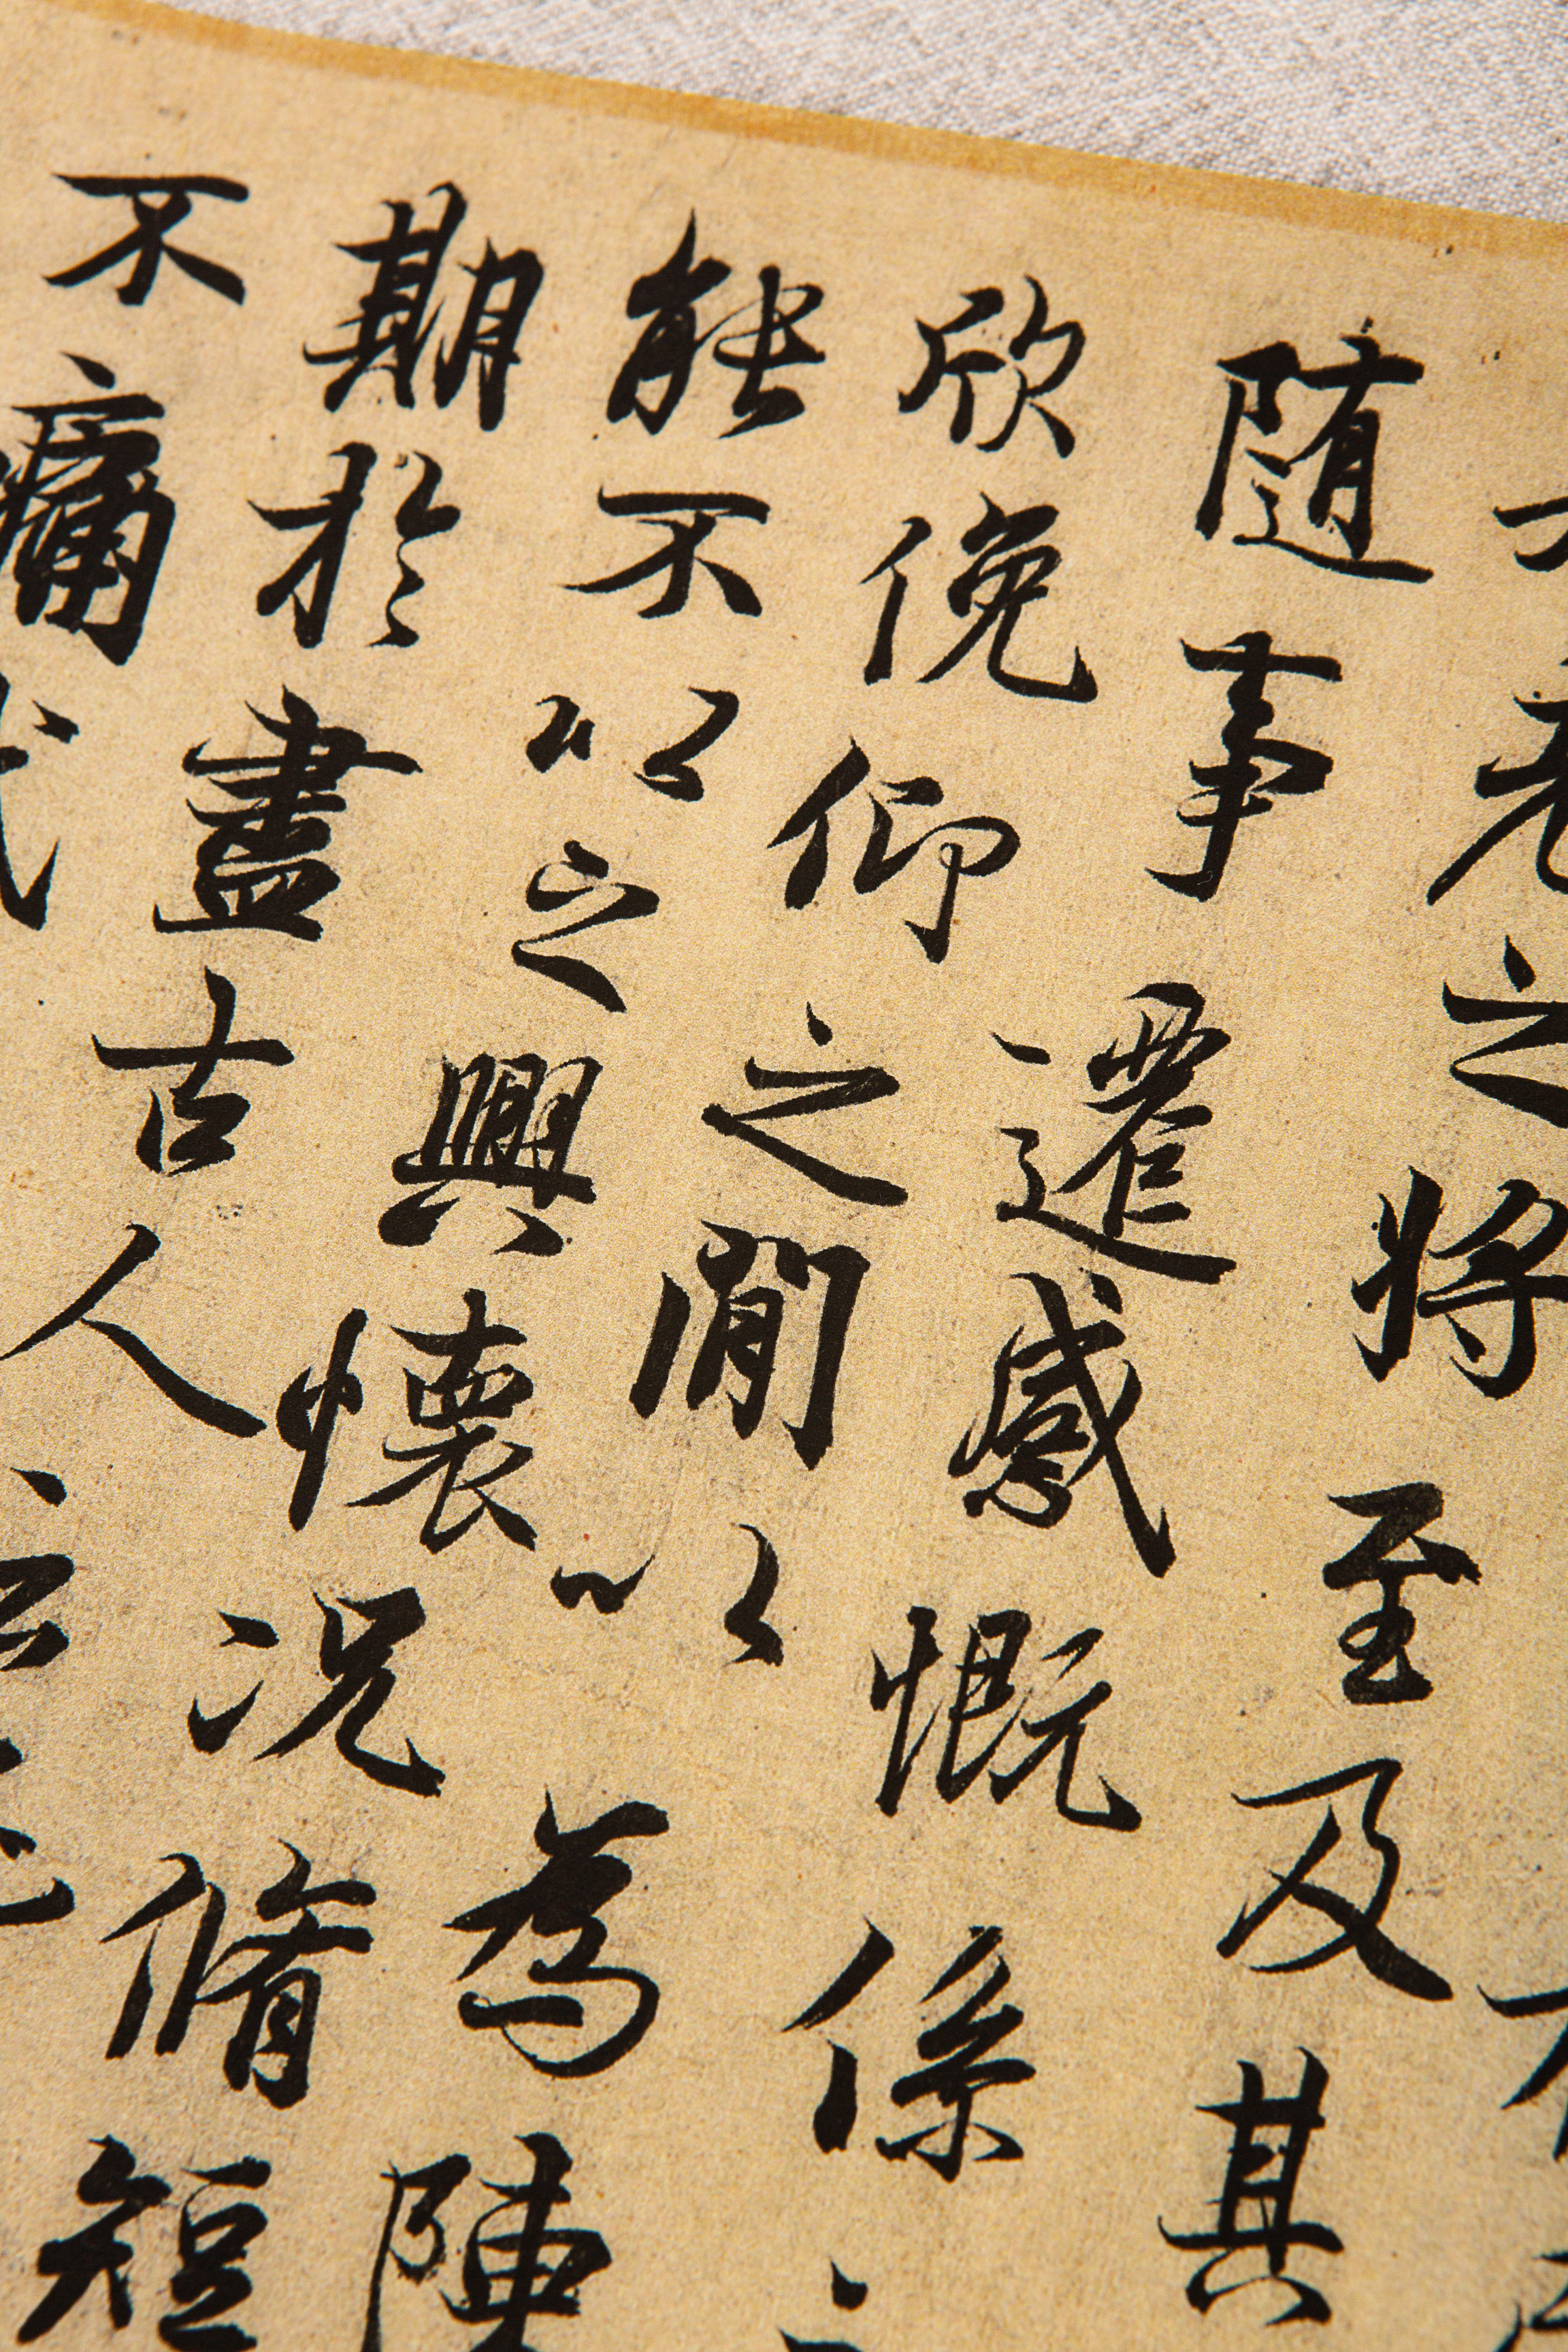 老之将至及其
随事遷感慨係
欣俛仰之閒以為陳
能不以之興懷况脩短
期於盡古人
不痛